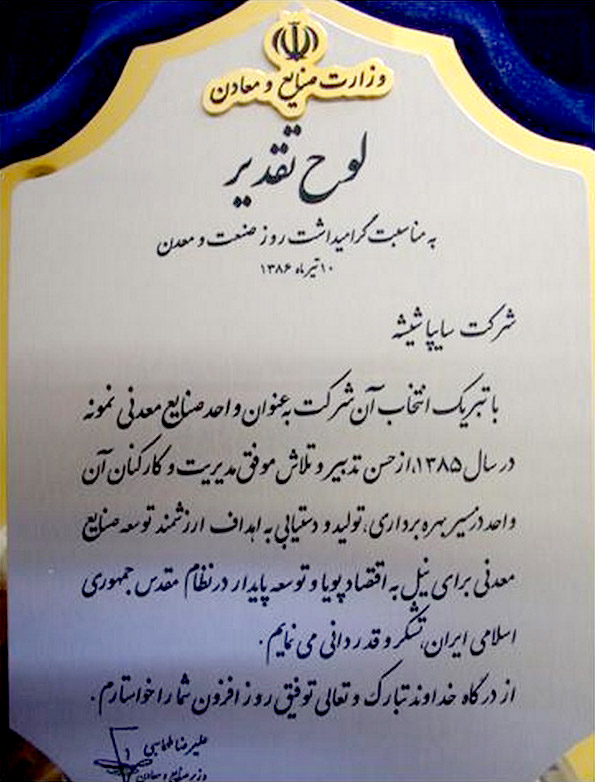 وزارت صنایع و معادن
لوح تقدیر
به مناسبت گرامیداشت روز صنعت و معدن
۱۰ تیرماه ۱۳۸۶
شرکت سایپا شیشه
با تبریک انتخاب آن شرکت به عنوان واحد صنایع معدنی نمونه
در سال ۱۳۸۵، از حسن تدبیر و تلاش موفق مدیریت و کارکنان آن
واحد در مسیر بهره برداری، تولید و دستیابی به اهداف ارزشمند توسعه صنایع
معدنی برای نیل به اقتصاد پویا و توسعه پایدار در نظام مقدس جمهوری
اسلامی ایران، تشکر و قدردانی می نمایم.
از درگاه خداوند تبارک و تعالی توفیق روز افزون شما را خواستارم.
علیرضا طهماسبی
وزیر صنایع و معادن